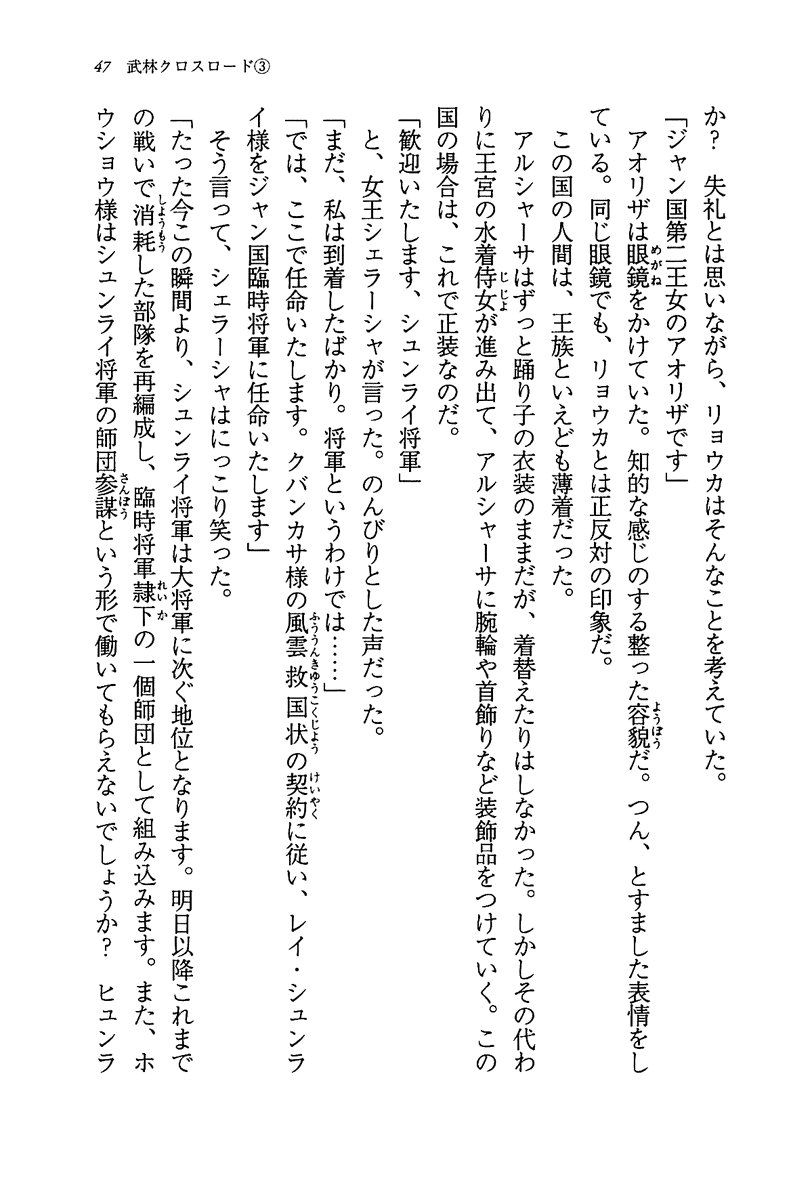 47 武林クロスロード③
か? 失礼とは思いながら、リョウカはそんなことを考えていた。
「ジャン国第二王女のアオリザです」
アオリザは眼鏡をかけていた。知的な感じのする整った容貌だ。つん、とすました表情をし
ている。同じ眼鏡でも、リョウカとは正反対の印象だ。
この国の人間は、王族といえども薄着だった。
アルシャーサはずっと踊り子の衣装のままだが、着替えたりはしなかった。しかしその代わ
りに王宮の水着侍女が進み出て、アルシャーサに腕輪や首飾りなど装飾品をつけていく。この
国の場合は、これで正装なのだ。
「歓迎いたします、シュンライ将軍」
と、女王シェラーシャが言った。のんびりとした声だった。
「まだ、私は到着したばかり。将軍というわけでは……」
「では、ここで任命いたします。クバンカサ様の風雲救国状の契約に従い、レイ・シュンラ
イ様をジャン国臨時将軍に任命いたします」
そう言って、シェラーシャはにっこり笑った。
「たった今この瞬間より、シュンライ将軍は大将軍に次ぐ地位となります。明日以降これまで
の戦いで消耗した部隊を再編成し、臨時将軍隷下の一個師団として組み込みます。また、ホ
ウショウ様はシュンライ将軍の師団参謀という形で働いてもらえないでしょうか? ヒュンラ